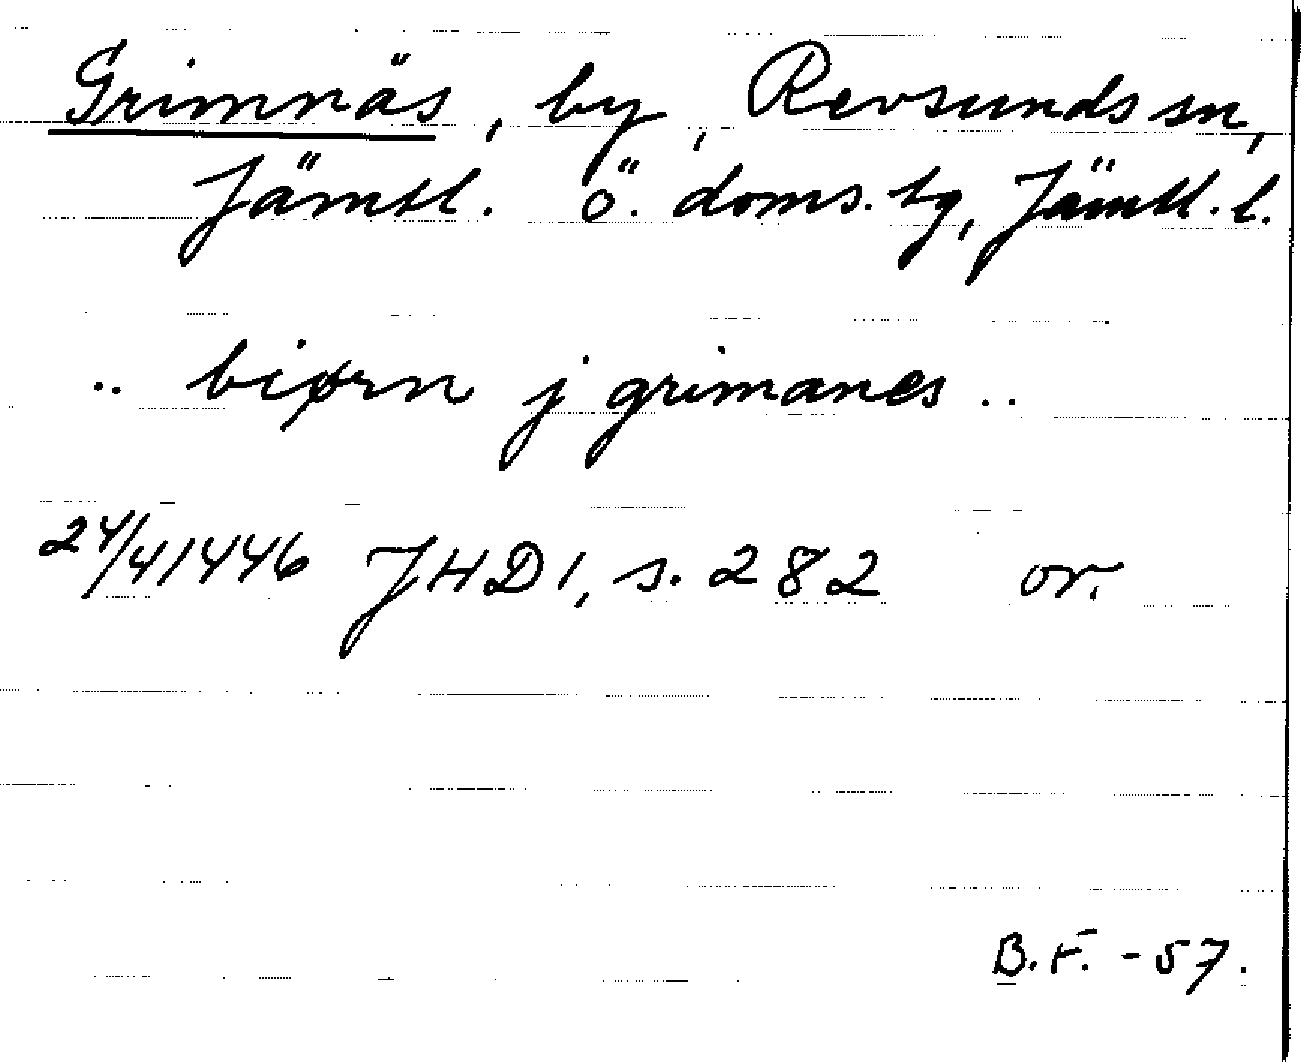 Grimnäs, by, Revsunds sn,
Jämtl. ö. doms. tg, Jämtl. l.
.. biørn j grimanes ..
24/4 1446 JHD 1, s. 282 or.
B.F. - 57.